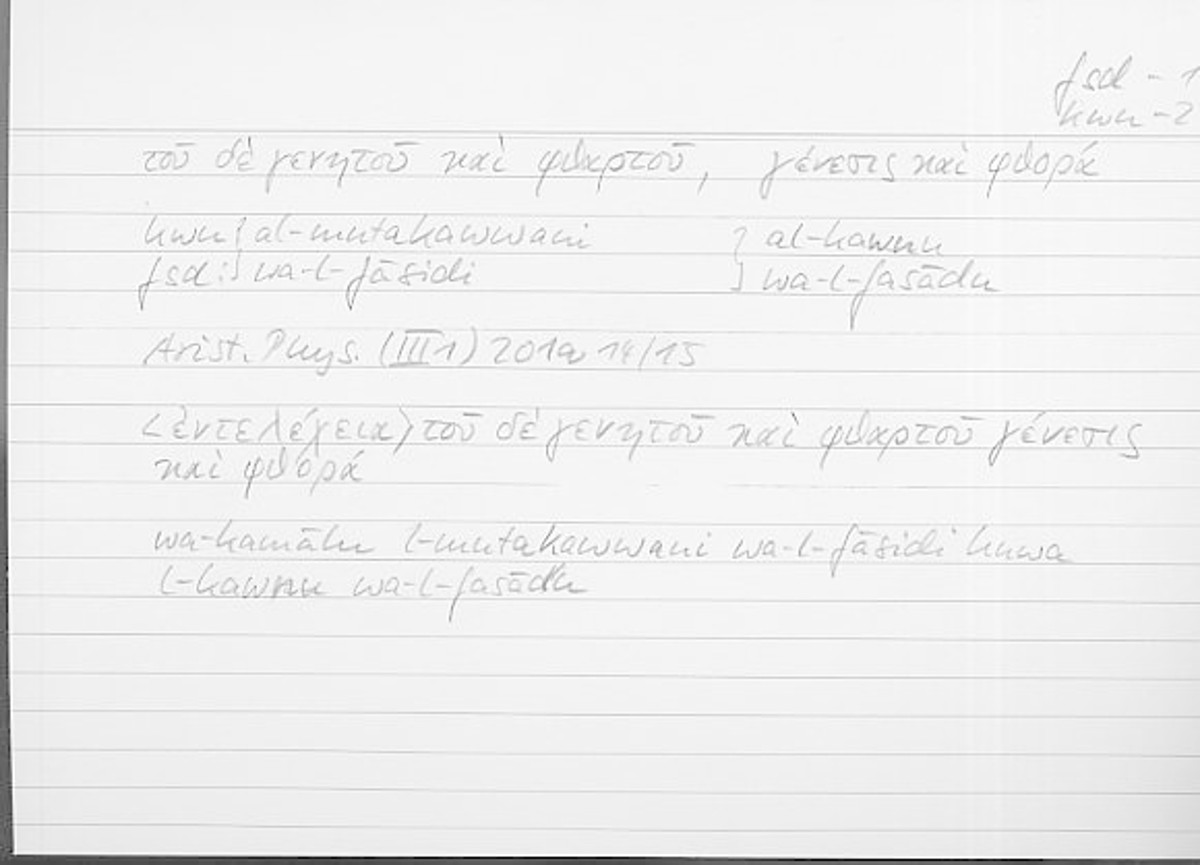 fsd - 1
kwn - 2
τοῦ δὲ γενητοῦ καὶ φθαρτοῦ, γένεσις καὶ φθορά
kwn } al-mutakawwani } al-kawnu
fsd: } wa-l-fāsidi } wa-l-fasādu
Arist. Phys. (III 1) 201a 14/15
<ἐντελέχεια> τοῦ δὲ γενητοῦ καὶ φθαρτοῦ γένεσις
καὶ φθορά
wa-kamālu l-mutakawwani wa-l-fāsidi huwa
l-kawnu wa-l-fasādu